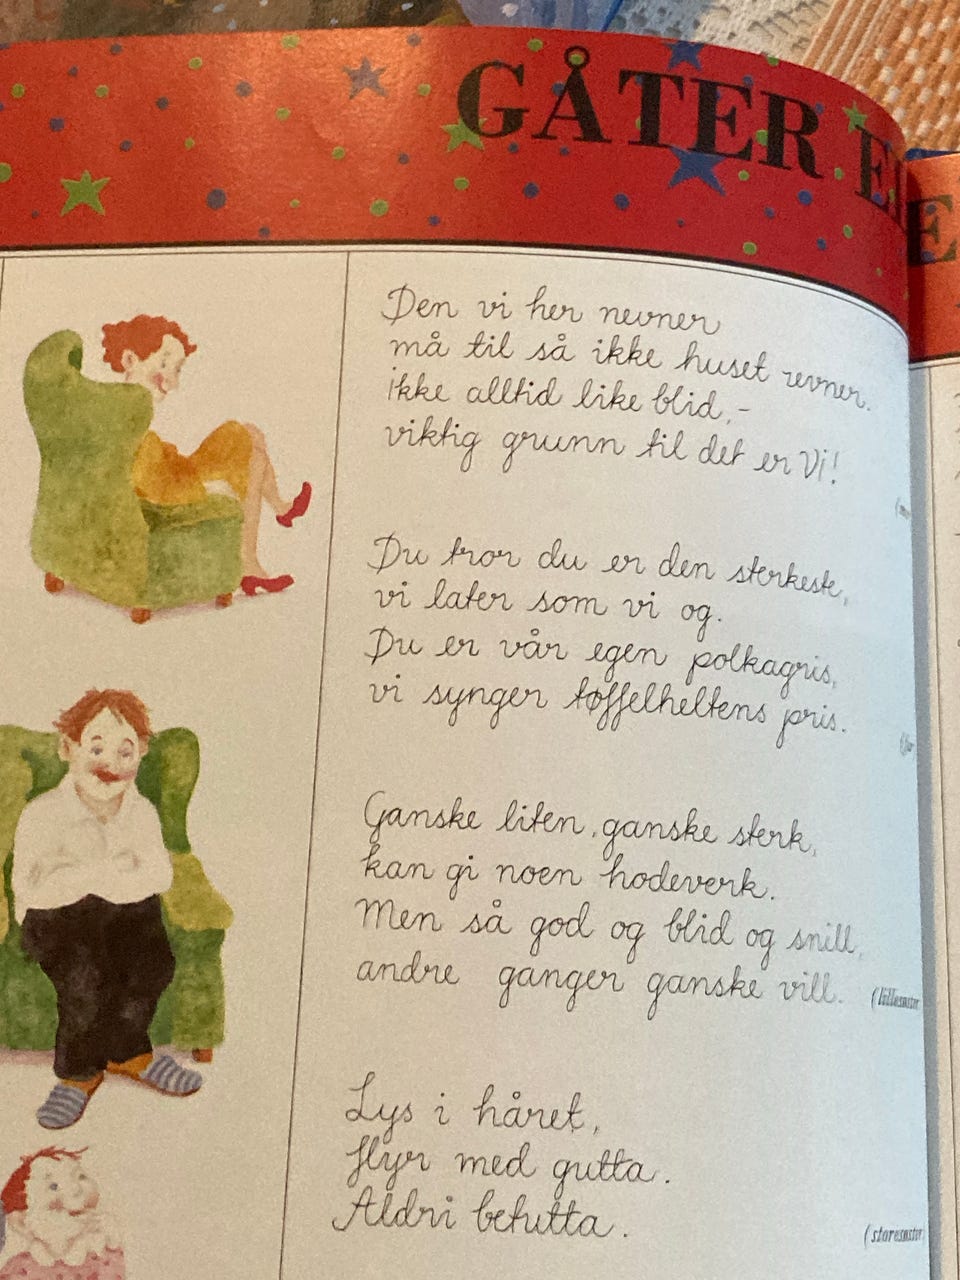 GÅTER
Den vi her nevner
må til så ikke huset revner.
ikke alltid like blid,-
viktig grunn til det er Vi!
Du tror du er den sterkeste,
vi later som vi og.
Du er vår egen polkagris,
vi synger tøffelheltens pris.
(far
Ganske liten, ganske sterk,
kan gi noen hodeverk.
Men så god og blid og snill,
andre ganger ganske vill.
(lillesøster
Lys i håret,
flyr med gutta.
Aldri befutta.
(storesøster)